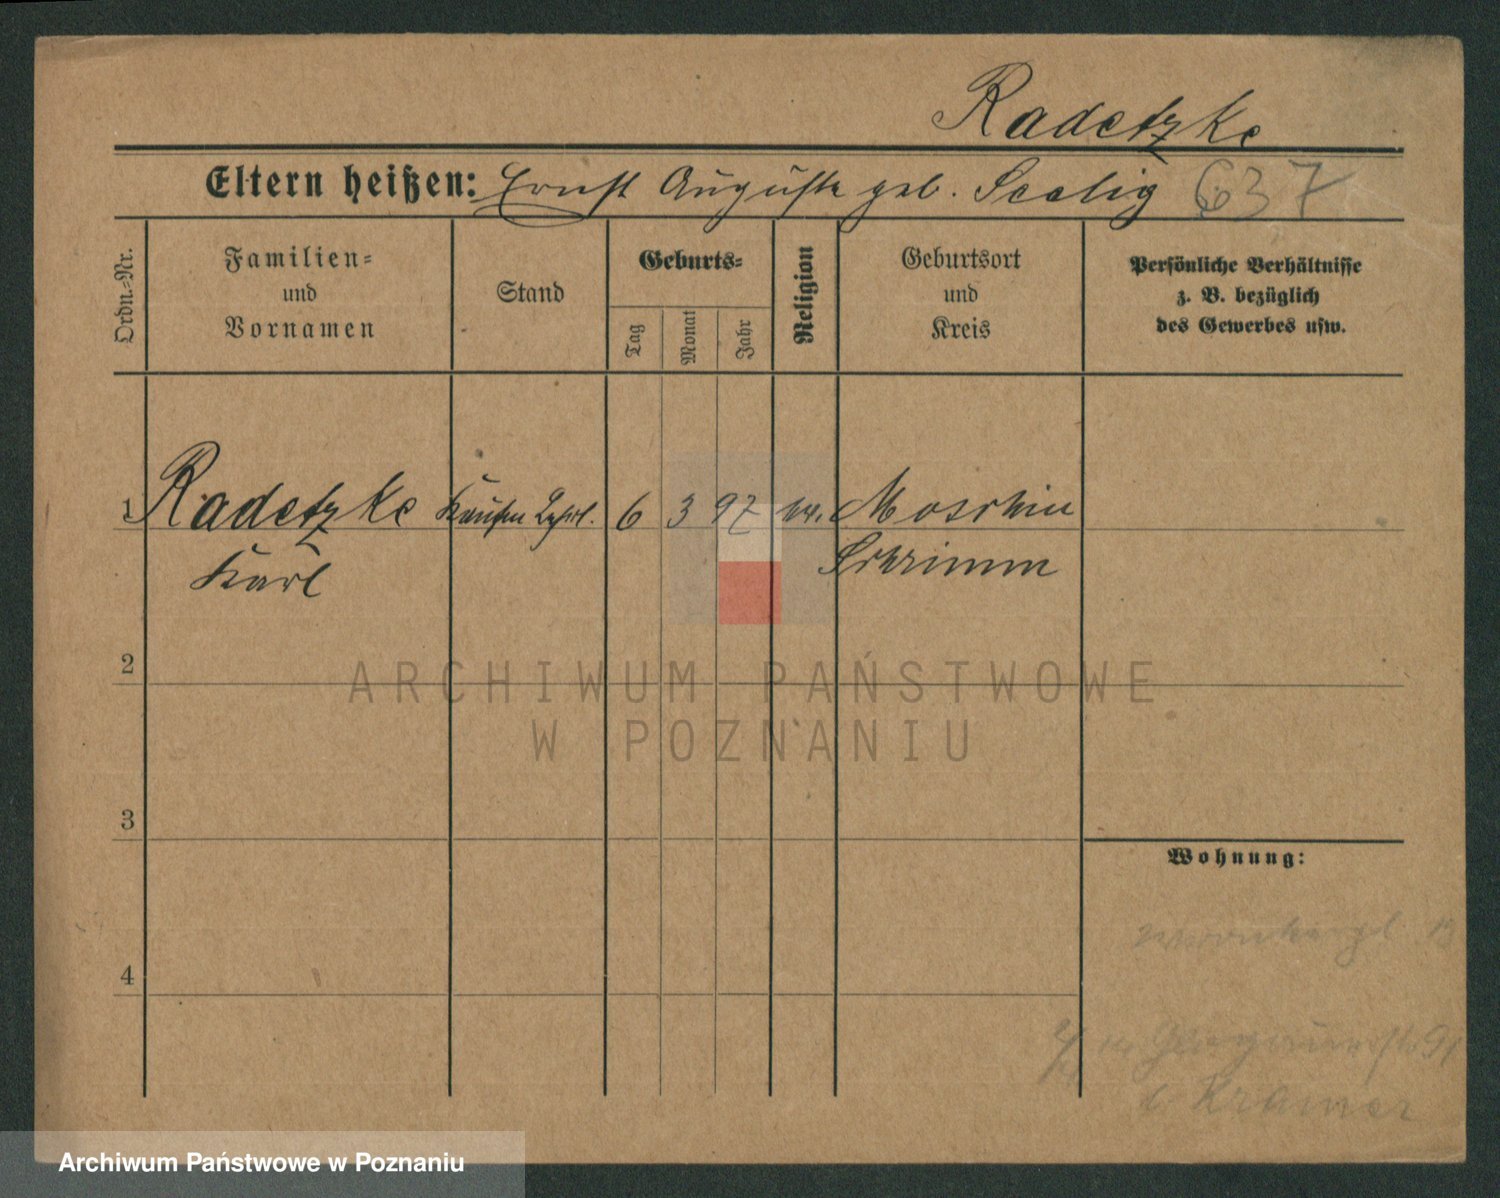 Radetzke
Eltern heißen: Ernst Auguste geb. Seelig 637
Ordn.-Nr.
Familien-
und
Vornamen
Stand
Geburts-
Tag
Monat
Jahr
Religion
Geburtsort
und
Kreis
Persönliche Verhältnisse
z. B. bezüglich
des Gewerbes usw.
1 Radetzke 6 3 97 ev. Moschin
Karl Schrimm
2
ARCHIWUM PAŃSTWOWE
W POZNANIU
3
Wohnung:
4
b Kramer
Archiwum Państwowe w Poznaniu